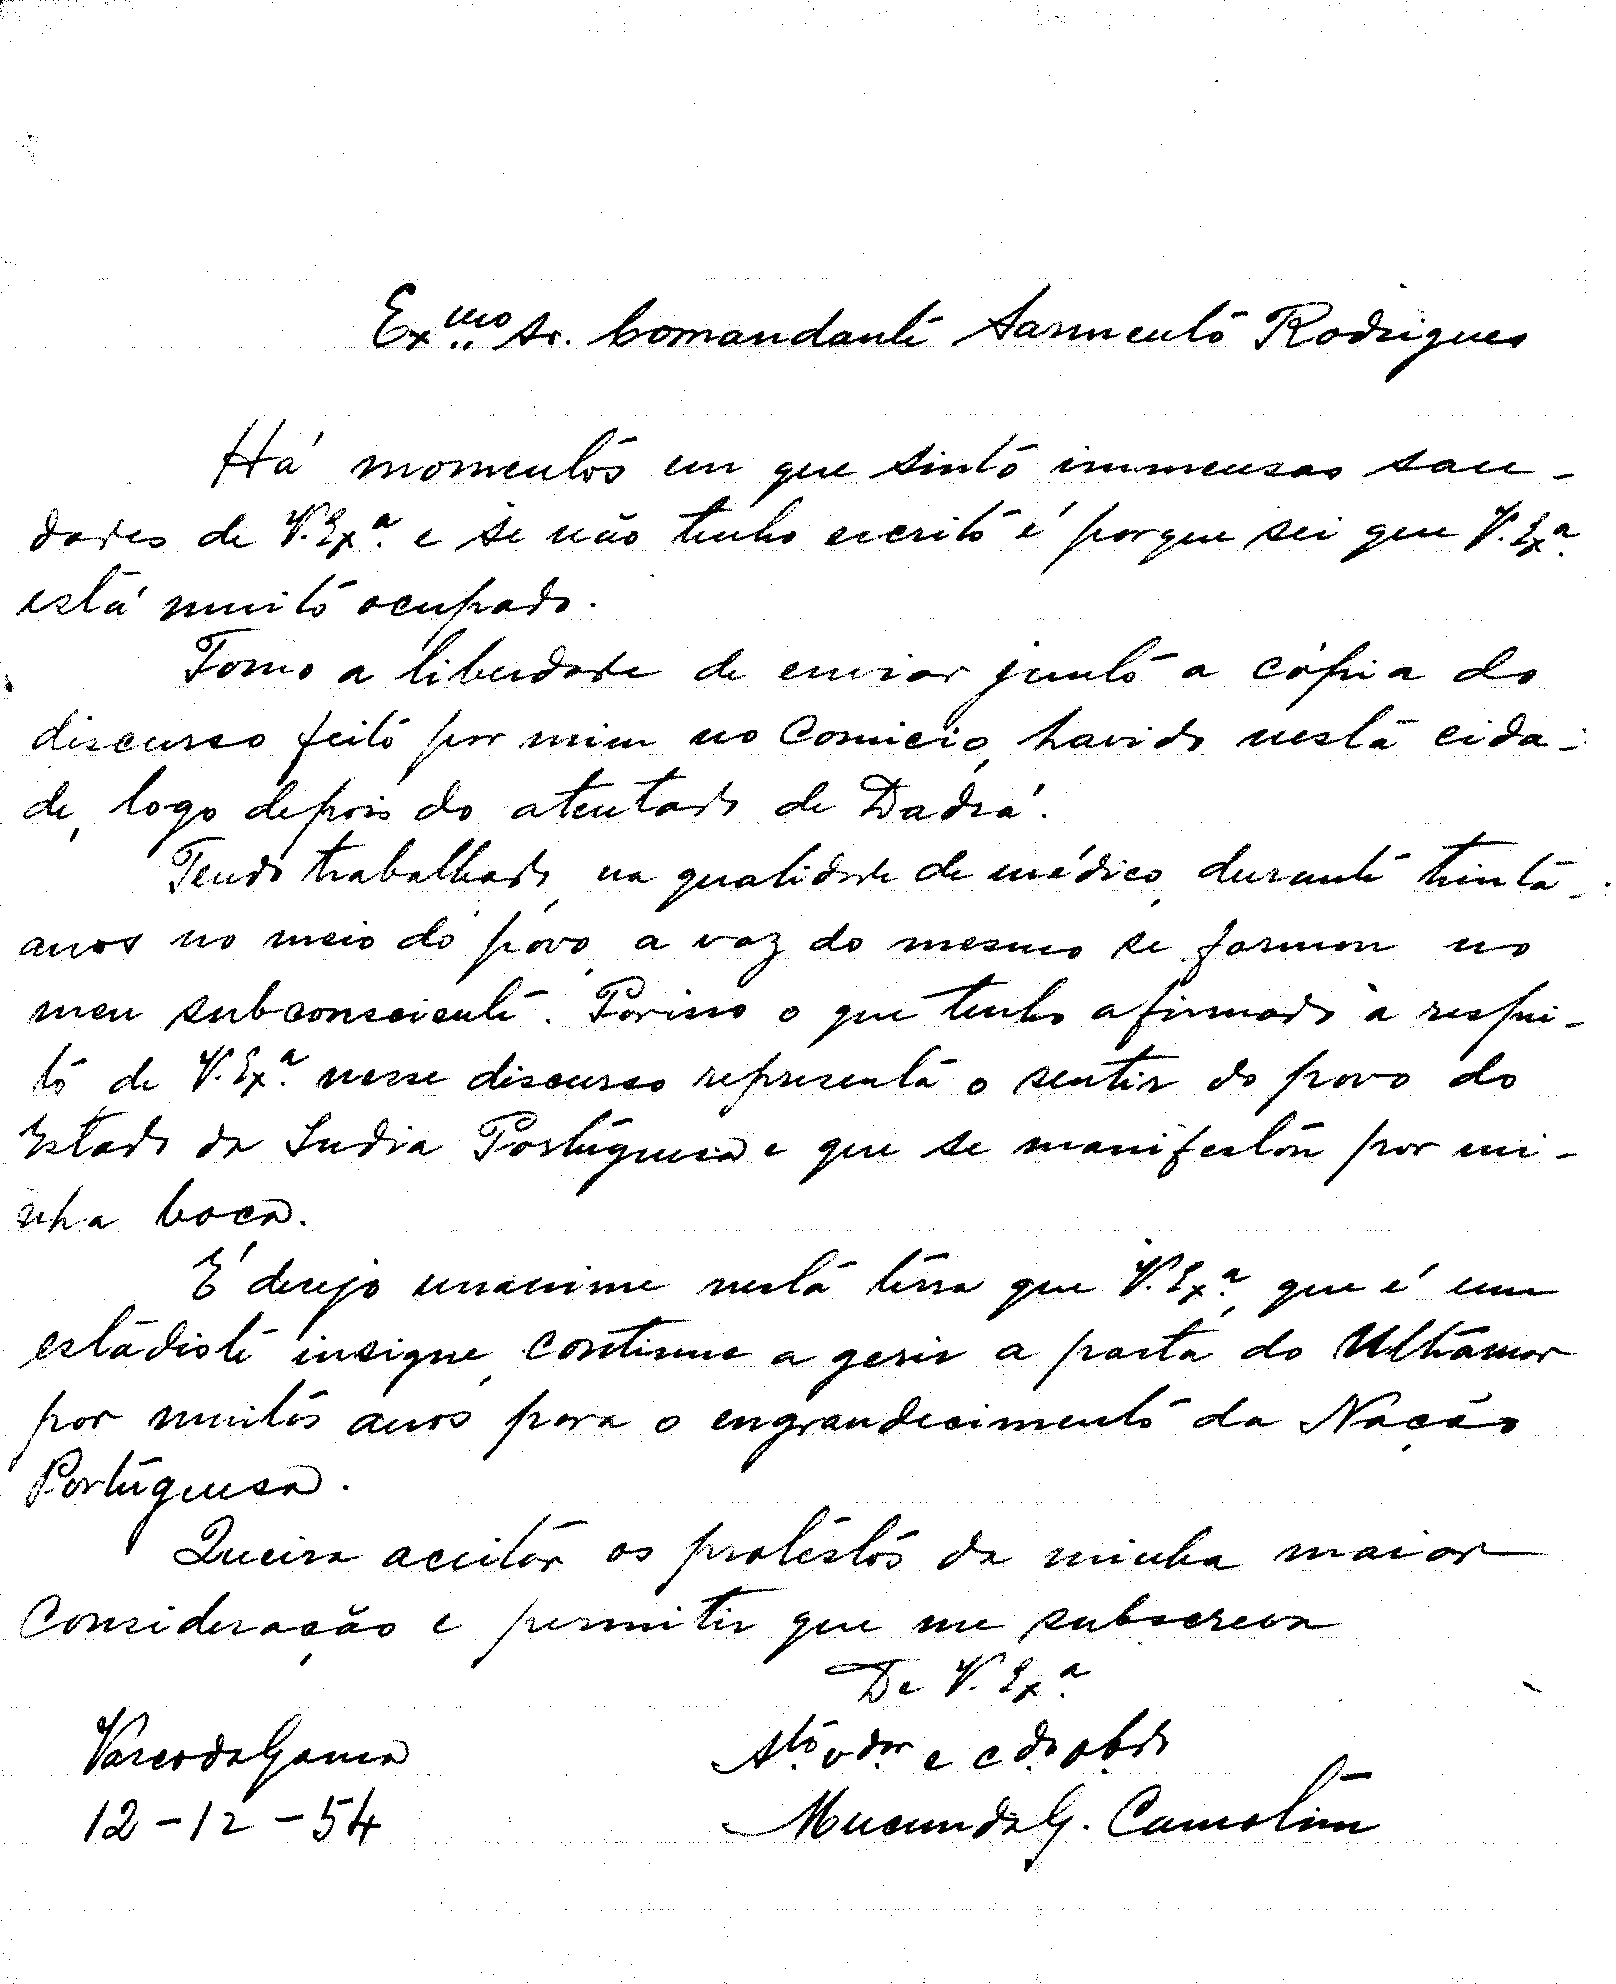 Exmo Sr. Comandante Sarmento Rodrigues
Há momentos em que sinto immensas sau-
dades de V. Exª. e se não tenho escrito é porque sei que V. Exª.
está muito ocupado.
Tomo a liberdade de enviar junto a cópia do
discurso feito por mim no Comicio, havido nesta cida-
de, logo depois do atentado de Dadrá.
Tendo trabalhado, na qualidade de médico, durante trinta
anos no meio do povo, a voz do mesmo se formou no
meu subconsciente. Porisso o que tenho afirmado a respei-
to de V. Exª. nesse discurso representa o sentir do povo do
Estado da India Portuguesa e que se manifestou por mi-
nha boca.
É desejo unanime nesta terra que V. Exª., que é um
estadiste insigne, continue a gerir a pasta do Ultramar
por muitos anos para o engrandecimento da Nação
Portuguesa.
Queira aceitar os protestos da minha maior
Consideração e permitir que me subscreva
De V. Exª.
Vasco da Gama Ato. vdor e cdo obdo
12-12-54 Mucunda G. Camotim